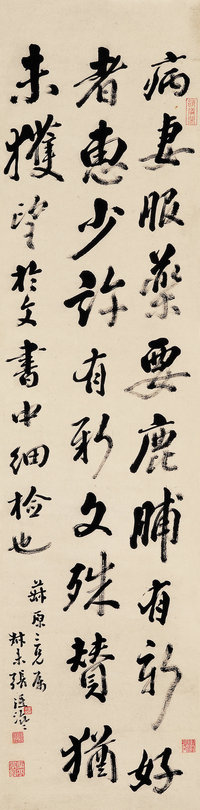 病妻服藥要鹿脯有新好
者惠少許有新文殊贊猶
未獲望於文書中細檢也
蘇原二兄屬
叔未張廷濟